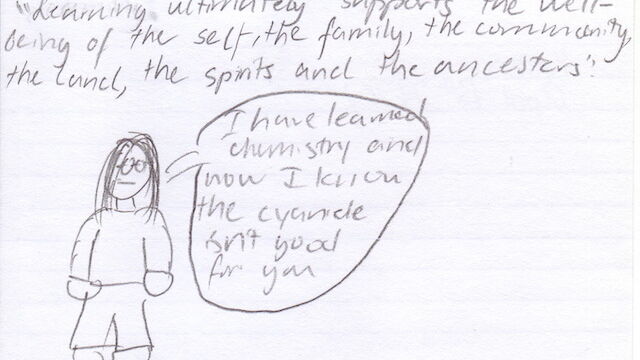 "Learning ultimately supports the well-
being of the self, the family, the community,
the land, the spirits and the ancestors".
I have learned
chemistry and
now I know
the cyanide
isn't good
for you